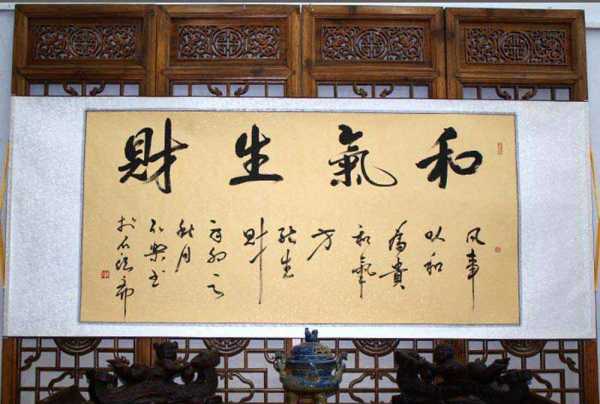 和氣生財
凡事
以和
為貴
和氣
方
能生
財
秋月